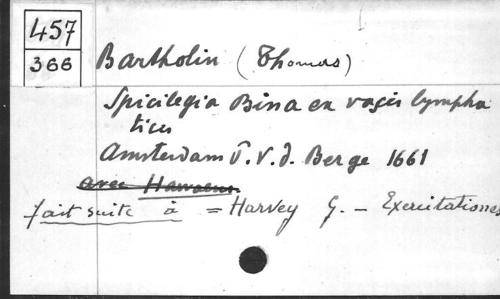 457
366
Bartholin (Thomas)
Spicilegia Bina ex vasis lympha
ticis
Amsterdam P. V. d. Berge 1661
avec
fait suite à = Harvey G. - Exercitationes